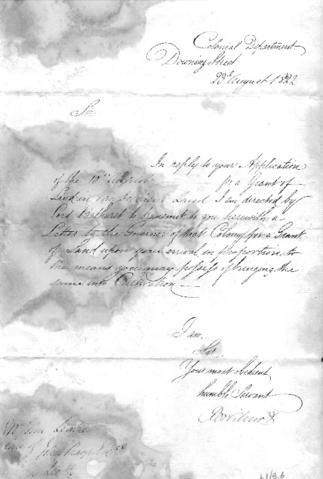 Colonial Department
Downing Street
22d August 1822
Sir
In reply to your Application
of the 10th for a Grant of
Land in Van Diemen's Land I am directed by
Lord Bathurst to transmit to you herewith a
Letter to the Governor of that Colony for a Grant
of Land upon your arrival in proportion to
the means you may possess of bringing the
same into Cultivation
I am
Sir
Your most Obedient
humble Servant